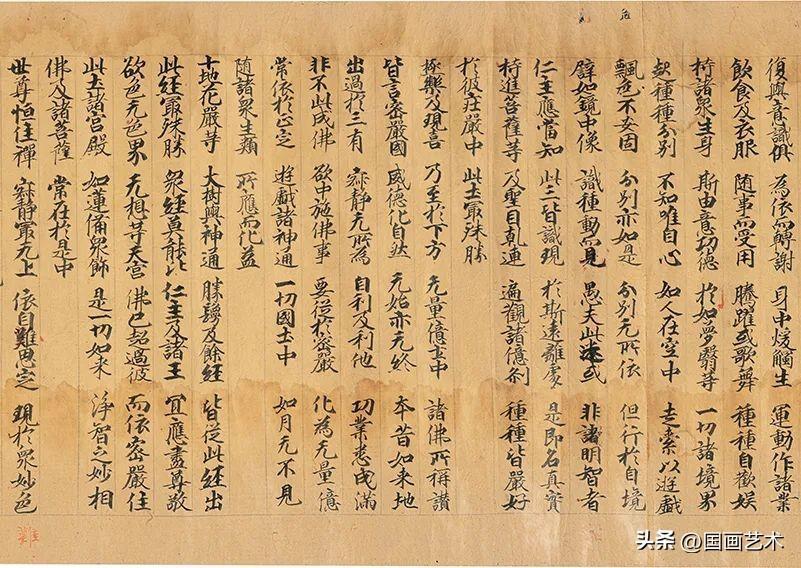 危
復與意識俱 為依而轉謝 身中煖觸生 運動作諸業
飲食及衣服 随事而受用 騰躍或歌舞 種種自歡娱
持諸衆生身 斯由意功德 於如夢翳等 一切諸境界
起種種分別 不知唯自心 如人在空中 走索以遊戲
飄危不安固 分別亦如是 分別无所依 但行於自境
譬如鏡中像 識種動而見 愚夫此迷或 非諸明智者
仁主應當知 此三皆識現 於斯遠離處 是即名真實
持進菩薩等 及聖目乾連 遍觀諸億刹 種種皆嚴好
於彼荘嚴中 此土最殊勝
極樂及現喜 乃至於下方 无量億土中 諸佛所稱讃
皆言密嚴國 威德化自然 无始亦无終 本昔如来地
出過於三有 寂静无所為 自利及利他 功業悉成滿
非不此成佛 欲中施佛事 要從於密嚴 化為无量億
常依於正定 遊戲諸神通 一切國土中 如月无不見
随諸衆生類 所應而化益
十地花嚴等 大樹與神通 勝鬘及餘経 皆從此経出
此経最殊勝 衆経莫能比 仁主及諸王 宜應盡尊敬
欲色无色界 无想等天宫 佛已超過彼 而依密嚴住
此土諸宫殿 如蓮備衆飾 是一切如来 浄智之妙相
佛及諸菩薩 常在於是中
世尊恒住禪 寂静最无上 依自難思定 現於衆妙色
头条 @国画艺术